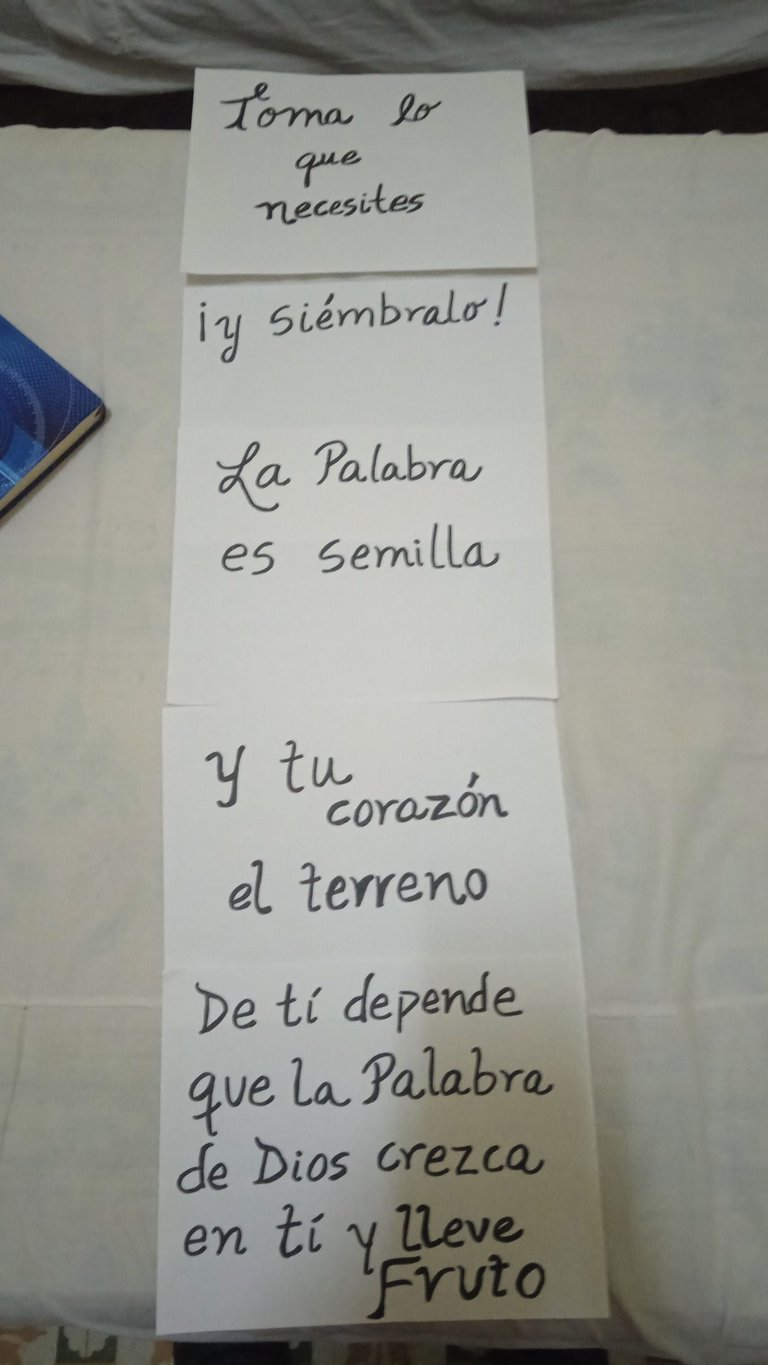 Toma lo
que
necesites
¡y siémbralo!
La Palabra
es semilla
y tu
corazón
el terreno
De tí depende
que la Palabra
de Dios crezca
en tí y lleve
Fruto